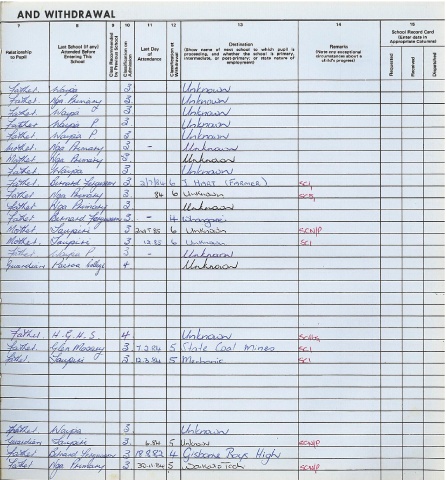 AND WITHDRAWAL
7 8 9 10 11 12 13 14 15
Relationship to Pupil
Last School (if any) Attended Before Entering This School
Class Recommended by Previous School
Classification on Admission
Last Day of Attendance
Classification at Withdrawal
Destination
(Show name of next school to which pupil is proceeding, and whether the school is primary, intermediate, or post-primary; or state nature of employment)
Remarks
(Note any exceptional circumstances about a child's progress)
School Record Card
(Enter date in Appropriate Column)
Requested
Received
Dispatched
Father Waipa 3 Unknown
Father Nga Primary 3 Unknown
Father Waipa 3 Unknown
Father Waipa P 3 Unknown
Father Waipa P 3 Unknown
Mother Nga Primary 3 - Unknown
Mother Nga Primary 3 Unknown
Father Waipa 3 Unknown
Father Bernard Fergusson 3 6 J HART (FARMER) SC1
Father Nga Primary 3 84 6 Unknown
Father Nga Primary 3 Unknown
Father Bernard Fergusson 3 - 4
Mother Taupiri 3 85 6 Unknown SCN/P
Mother Taupiri 3 12.85 6 Unknown SC1
Father Waipa P 3 - Unknown
Guardian College 4 Unknown
Father H.G.H.S 4 Unknown
Father Glen Massey 3 7.2.84 5 State Coal Mines SC1
Father Taupiri 3 12.3.84 5 Mechanic SC1
Father Waipa 3 Unknown
Guardian Taupiri 3 6.84 5 Unknown SCN/P
Father Bernard Fergusson 3 18.8.82 4 Gisborne Boys High
Father Nga Primary 3 30.11.84 5 Waikato Tech SCN/P